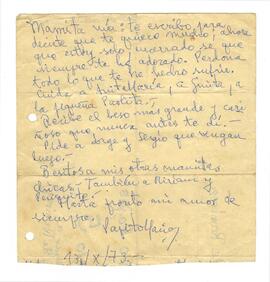 Mamita mía: te escribo para
decirte que te quiero mucho; ahora
que estoy solo y encerrado sé que
siempre te he adorado. Perdona
todo lo que te he hecho sufrir.
Cuida a
la pequeña
Recibe el beso más grande y cari
ñoso que nunca antes te di.-
Pide a Jorge y Sergio que vengan
luego.-
Besitos a mis otras
chicas. También a Ririane y
Hasta pronto mi amor de
siempre.
13/X/73.-